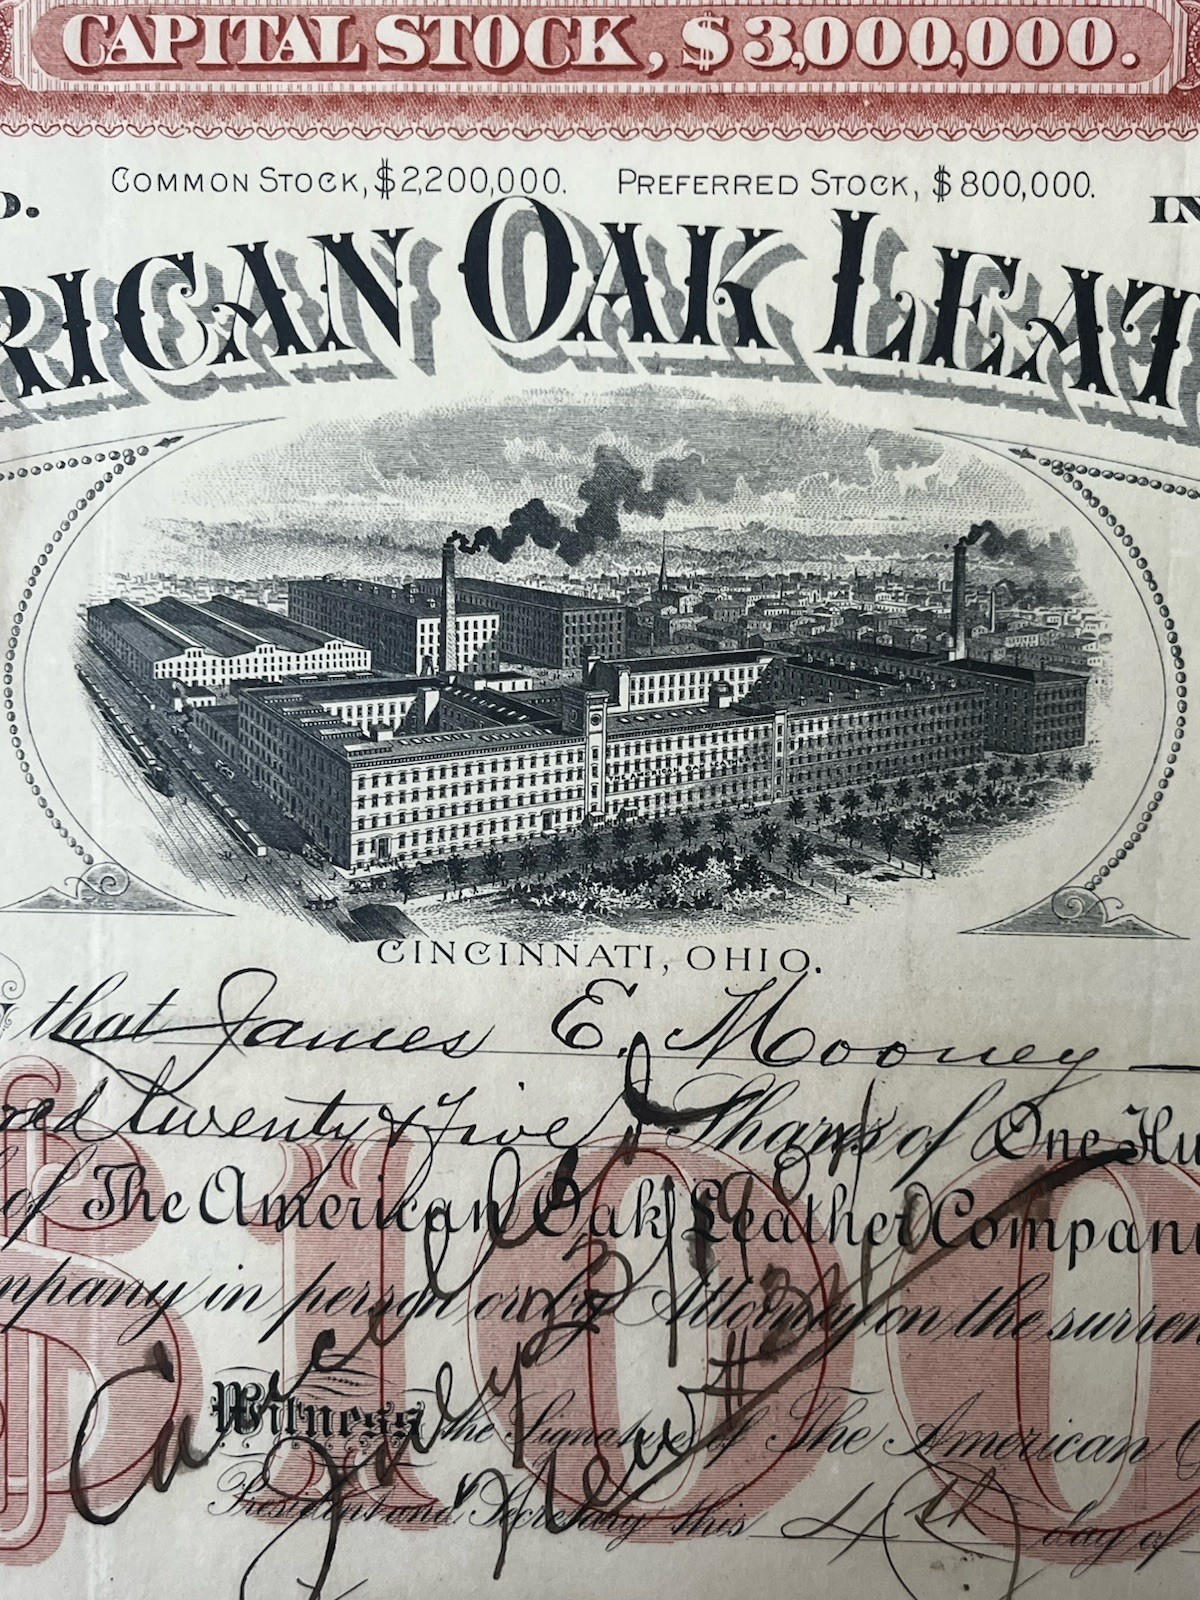 CAPITAL STOCK, $3,000,000.
COMMON STOCK, $2,200,000. PREFERRED STOCK, $800,000.
RICAN OAK LEAT
CINCINNATI, OHIO.
that James E. Mooney
red twenty & Five Shares of One Hu
of The American Oak Leather Compan
mpany in person or by Attorney on the surren
Witness the Signatures of The American
President and Secretary this 4th day of